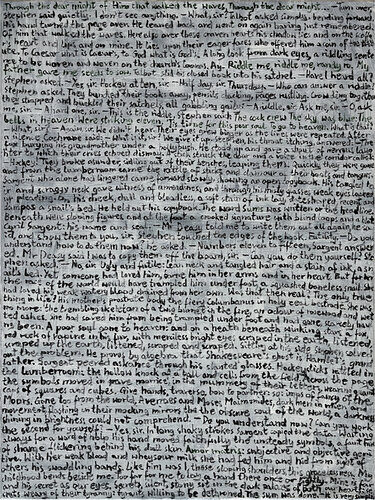 Through the dear might of Him that walked the waves, Through the dear might — Turn over,
Stephen said quietly. I don't see anything. — What, sir? Talbot asked simply, bending forward.
His hand turned the page over. He leaned back and went on again having just remembered.
Of him that walked the waves. Here also over these craven hearts his shadow lies and on the scoffer's
heart and lips and on mine. It lies upon their eager faces who offered him a coin of the
tribute. To Caesar what is Caesar's, to God what is God's. A long look from dark eyes, a riddling sentence
to be woven and woven on the church's looms. Ay. Riddle me, riddle me, randy ro. My
father gave me seeds to sow. Talbot slid his closed book into his satchel. — Have I heard all?
Stephen asked. — Yes, sir. Hockey at ten, sir. — Half day, sir. Thursday. — Who can answer a riddle?
Stephen asked. They bundled their books away, pencils clacking, pages rustling. Crowding together
they strapped and buckled their satchels, all gabbling gaily: — A riddle, sir? Ask me, sir. — O, ask
me, sir. — A hard one, sir. — This is the riddle, Stephen said: The cock crew, The sky was blue: The
bells in heaven Were striking eleven. 'Tis time for this poor soul To go to heaven. What is that?
— What, sir? — Again, sir. We didn't hear. Their eyes grew bigger as the lines were repeated. After
a silence Cochrane said: — What is it, sir? We give it up. Stephen, his throat itching, answered: — The
fox burying his grandmother under a hollybush. He stood up and gave a shout of nervous
laughter to which their cries echoed dismay. A stick struck the door and a voice in the corridor called:
— Hockey! They broke asunder, sidling out of their benches, leaping them. Quickly they were gone
and from the lumberroom came the rattle of sticks and clamour of their boots and tongues.
Sargent who alone had lingered came forward slowly, showing an open copybook. His tangled hair
and scraggy neck gave witness of unreadiness and through his misty glasses weak eyes looked
up pleading. On his cheek, dull and bloodless, a soft stain of ink lay, dateshaped, recent and
damp as a snail's bed. He held out his copybook. The word Sums was written on the headline.
Beneath were sloping figures and at the foot a crooked signature with blind loops and a blot.
Cyril Sargent: his name and seal. — Mr Deasy told me to write them out all again, he said,
and show them to you, sir. Stephen touched the edges of the book. Futility. — Do you
understand how to do them now? he asked. — Numbers eleven to fifteen, Sargent answered.
Mr Deasy said I was to copy them off the board, sir. — Can you do them yourself? Stephen
asked. — No, sir. Ugly and futile: lean neck and tangled hair and a stain of ink, a snail's
bed. Yet someone had loved him, borne him in her arms and in her heart. But for her
the race of the world would have trampled him under foot, a squashed boneless snail. She
had loved his weak watery blood drained from her own. Was that then real? The only true
thing in life? His mother's prostrate body the fiery Columbanus in holy zeal bestrode. She was
no more: the trembling skeleton of a twig burnt in the fire, an odour of rosewood and
wetted ashes. She had saved him from being trampled under foot and had gone, scarcely having
been. A poor soul gone to heaven: and on a heath beneath winking stars a fox,
red reek of rapine in his fur, with merciless bright eyes scraped in the earth, listened,
scraped up the earth, listened, scraped and scraped. Sitting at his side Stephen solved
out the problem. He proves by algebra that Shakespeare's ghost is Hamlet's grand
father. Sargent peered askance through his slanted glasses. Hockeysticks rattled in
the lumberroom: the hollow knock of a ball and calls from the field. Across the page
the symbols moved in grave morrice, in the mummery of their letters, wearing quaint
caps of squares and cubes. Give hands, traverse, bow to partner: so: imps of fancy of the
Moors. Gone too from the world, Averroes and Moses Maimonides, dark men in mien and
movement, flashing in their mocking mirrors the obscure soul of the world, a darkness
shining in brightness which brightness could not comprehend. — Do you understand now? Can you work
the second for yourself? — Yes, sir. In long shaky strokes Sargent copied the data. Waiting
always for a word of help his hand moved faithfully the unsteady symbols, a faint hue
of shame flickering behind his dull skin. Amor matris: subjective and objective genitive.
With her weak blood and wheysour milk she had fed him and hid from sight of
others his swaddling bands. Like him was I, these sloping shoulders, this gracelessness. My
childhood bends beside me. Too far for me to lay a hand there once or lightly. Mine is far
and his secret as our eyes. Secrets, silent, stony sit in the dark palaces of both our
hearts: secrets weary of their tyranny: tyrants willing to be dethroned. The sum was done.